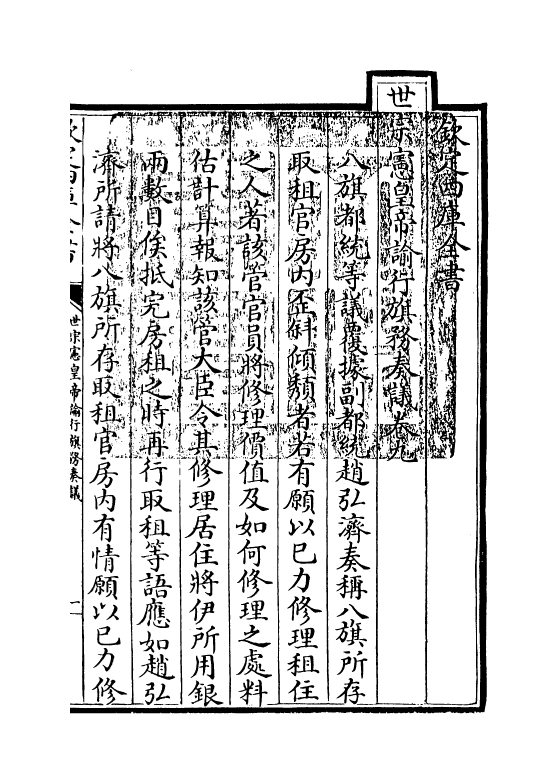 欽定四庫全書
世宗憲皇帝諭行旗務奏議卷九
八旗都統等議覆據副都統趙弘濟奏稱八旗所存
取租官房內歪斜傾頽者若有願以已力修理租住
之人著該管官員將修理價值及如何修理之處料
估計算報知該管大臣令其修理居住將伊所用銀
兩數目俟抵完房租之時再行取租等語應如趙弘
濟所請將八旗所存取租官房內有情願以已力修
欽定四庫全書
世宗憲皇帝諭行旗務奏議
一